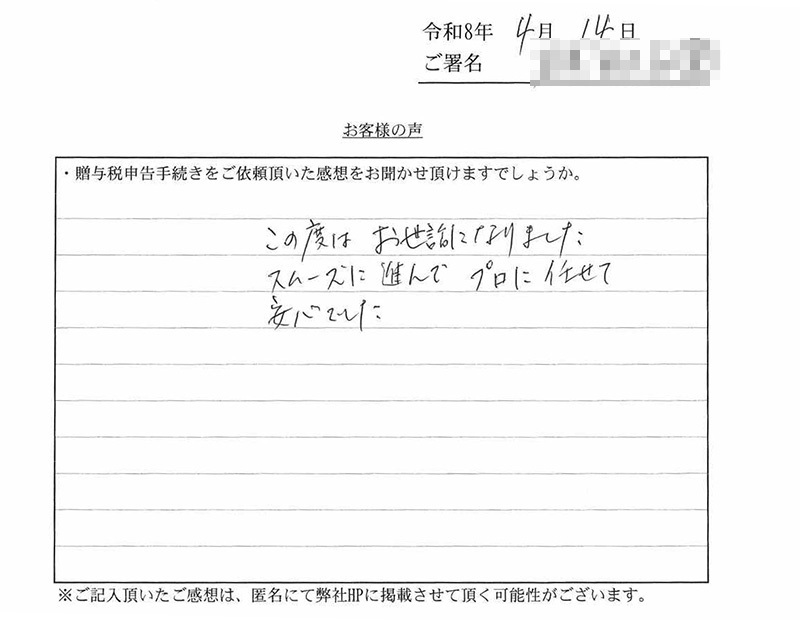 令和8年 4月 14日
ご署名
お客様の声
・贈与税申告手続きをご依頼頂いた感想をお聞かせ頂けますでしょうか。
この度は お世話になりました
スムーズに 進んで プロに 任せて
安心でした
※ご記入頂いたご感想は、匿名にて弊社HPに掲載させて頂く可能性がございます。